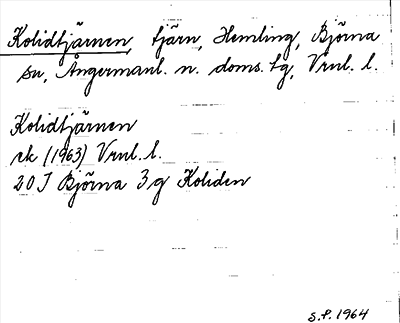 Kolidtjärnen, tjärn, Hemling, Björna
sn, Ångermanl. n. doms. tg, Vrnl. l.
Kolidtjärnen
rk (1963) Vrnl. l.
20 J Björna 3 g Koliden
S.P. 1964